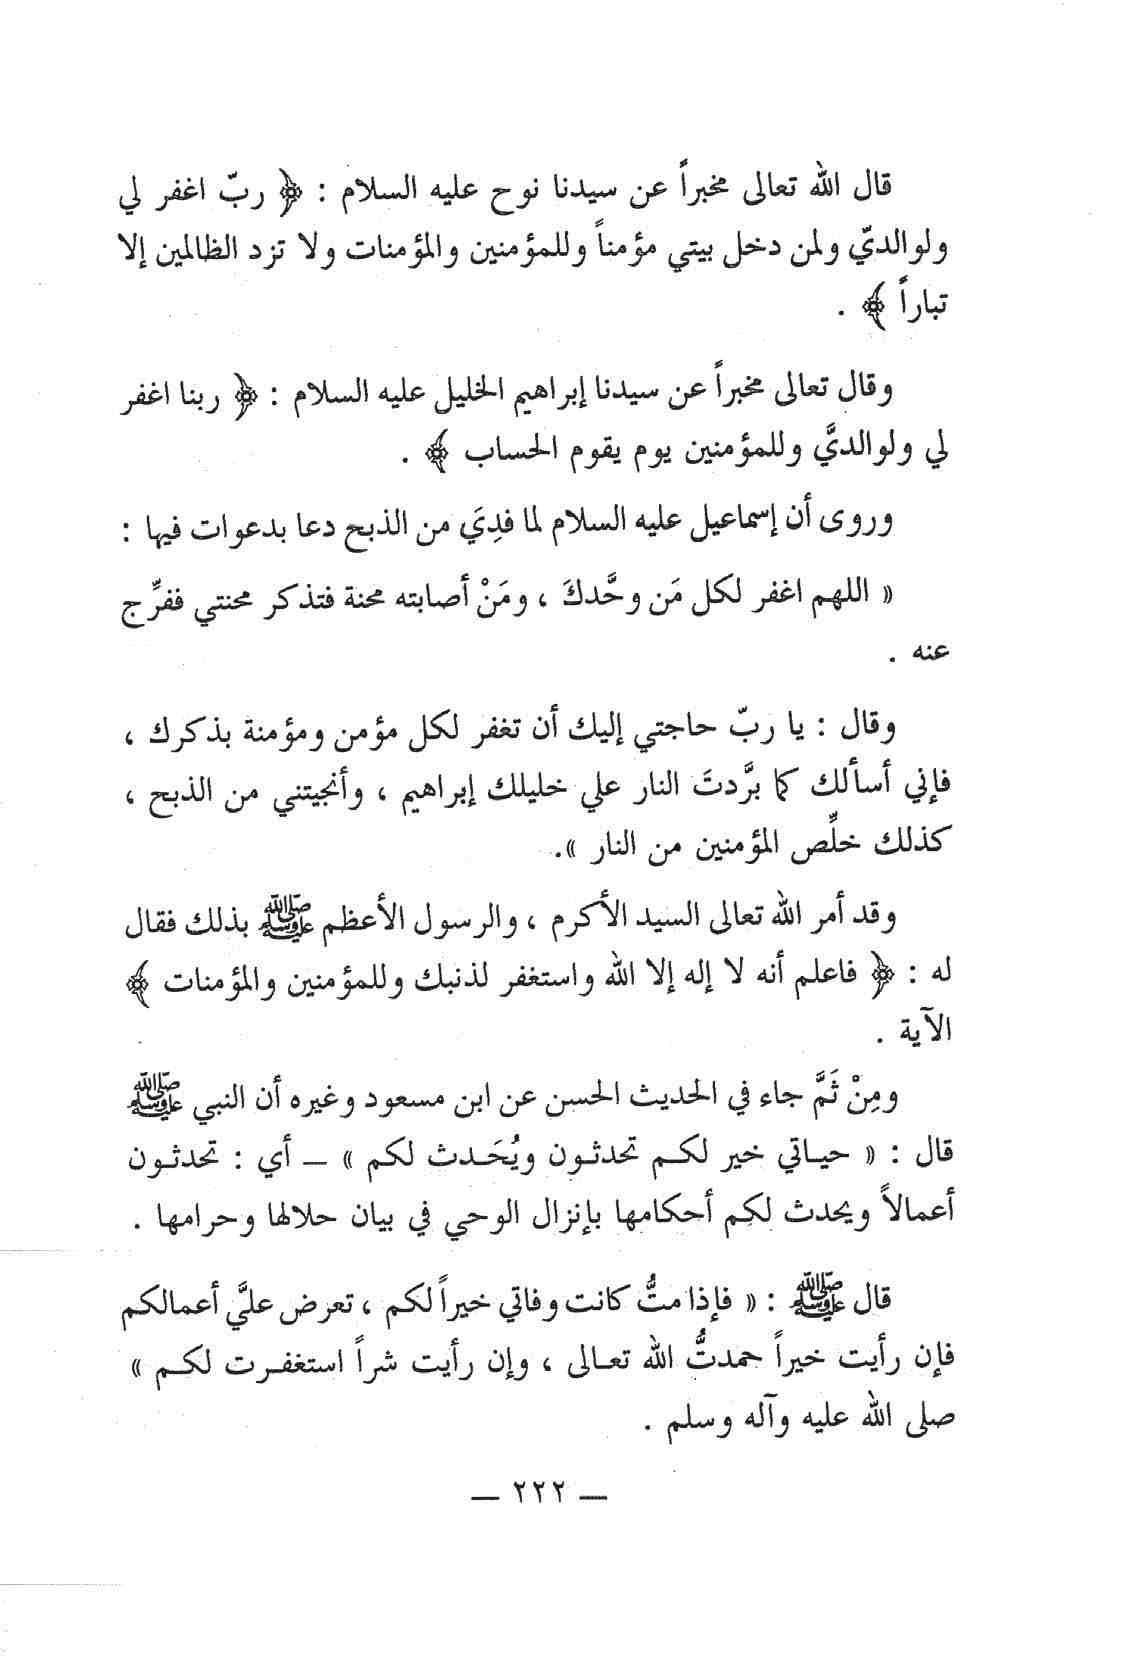 قال الله تعالى مخبراً عن سيدنا نوح عليه السلام : ﴿ ربّ اغفر لي
ولوالديّ ولمن دخل بيتي مؤمناً وللمؤمنين والمؤمنات ولا تزد الظالمين إلا
تباراً ﴾ .
وقال تعالى مخبراً عن سيدنا إبراهيم الخليل عليه السلام : ﴿ ربنا اغفر
لي ولوالديَّ وللمؤمنين يوم يقوم الحساب ﴾ .
وروى أن إسماعيل عليه السلام لما فدِيَ من الذبح دعا بدعوات فيها :
« اللهم اغفر لكل مَن وحَّدكَ ، ومَنْ أصابته محنة فتذكر محنتي ففرِّج
عنه .
وقال : يا ربّ حاجتي إليك أن تغفر لكل مؤمن ومؤمنة بذكرك ،
فإني أسألك كما برَّدتَ النار علي خليلك إبراهيم ، وأنجيتني من الذبح ،
كذلك خلِّص المؤمنين من النار ».
وقد أمر الله تعالى السيد الأكرم ، والرسول الأعظم ﷺ بذلك فقال
له : ﴿ فاعلم أنه لا إله إلا الله واستغفر لذنبك وللمؤمنين والمؤمنات ﴾
الآية .
ومِنْ ثَمَّ جاء في الحديث الحسن عن ابن مسعود وغيره أن النبي ﷺ
قال : « حيـاتي خير لكـم تحدثـون ويُحَـدث لكم » ــ أي : تحدثـون
أعمالاً ويحدث لكم أحكامها بإنزال الوحي في بيان حلالها وحرامها .
قال ﷺ : « فإذا متُّ كانت وفاتي خيراً لكم ، تعرض عليَّ أعمالكم
فإن رأيت خيراً حمدتُّ الله تعـالى ، وإن رأيت شراً استغفـرت لكـم »
صلى الله عليه وآله وسلم .
ــ ٢٢٢ ــ